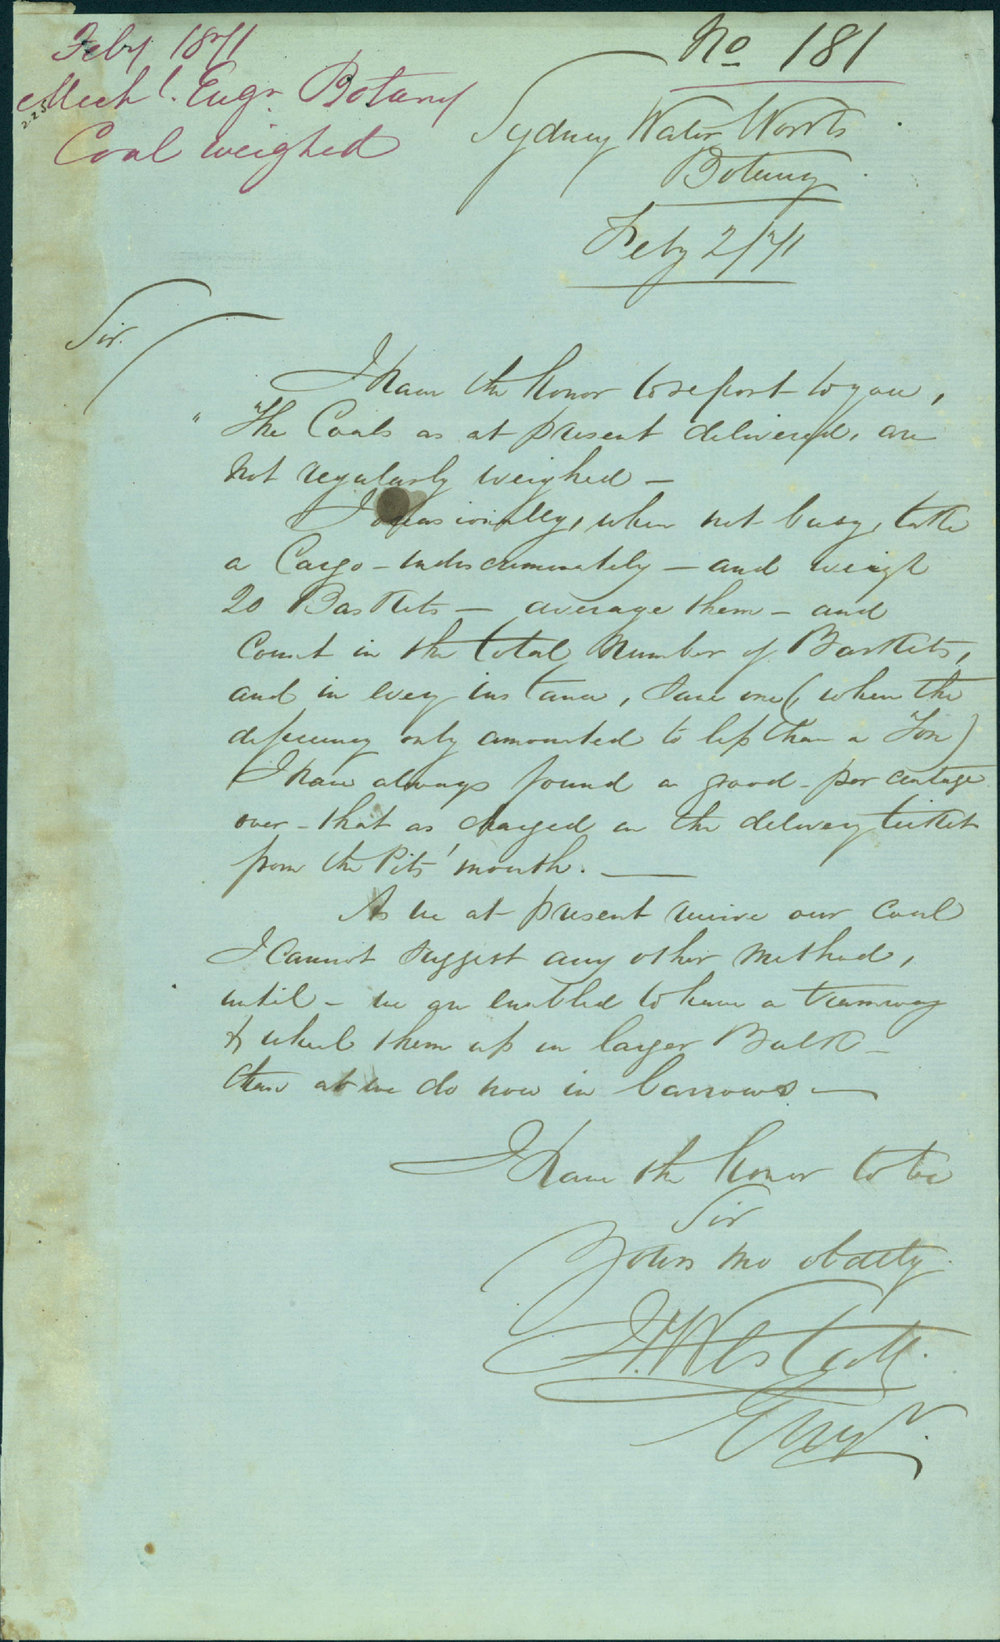 Feby 1871
Mechl. Engr. Botany
Coal weighed
No 181
Sydney Water Works
Botany
Feby 2/71
Sir.
I have the honor to report to you,
"The Coals as at present delivered, are
not regularly weighed —
I occasionally, when not busy, take
a Cargo – indiscriminately – and weigh
20 Baskets – average them – and
count in the total number of Baskets,
and in every instance, save one (when the
deficiency only amounted to less than a Ton)
I have always found a good - per centage
over - that as charged on the delivery ticket
from the Pits' mouth. —
As we at present receive our coal
I cannot suggest any other method,
until - we are enabled to have a tramway
& wheel them up in larger Bulk –
than as we do now in barrows —
I have the honor to be
Sir
Yours mo obdtly
Engr.